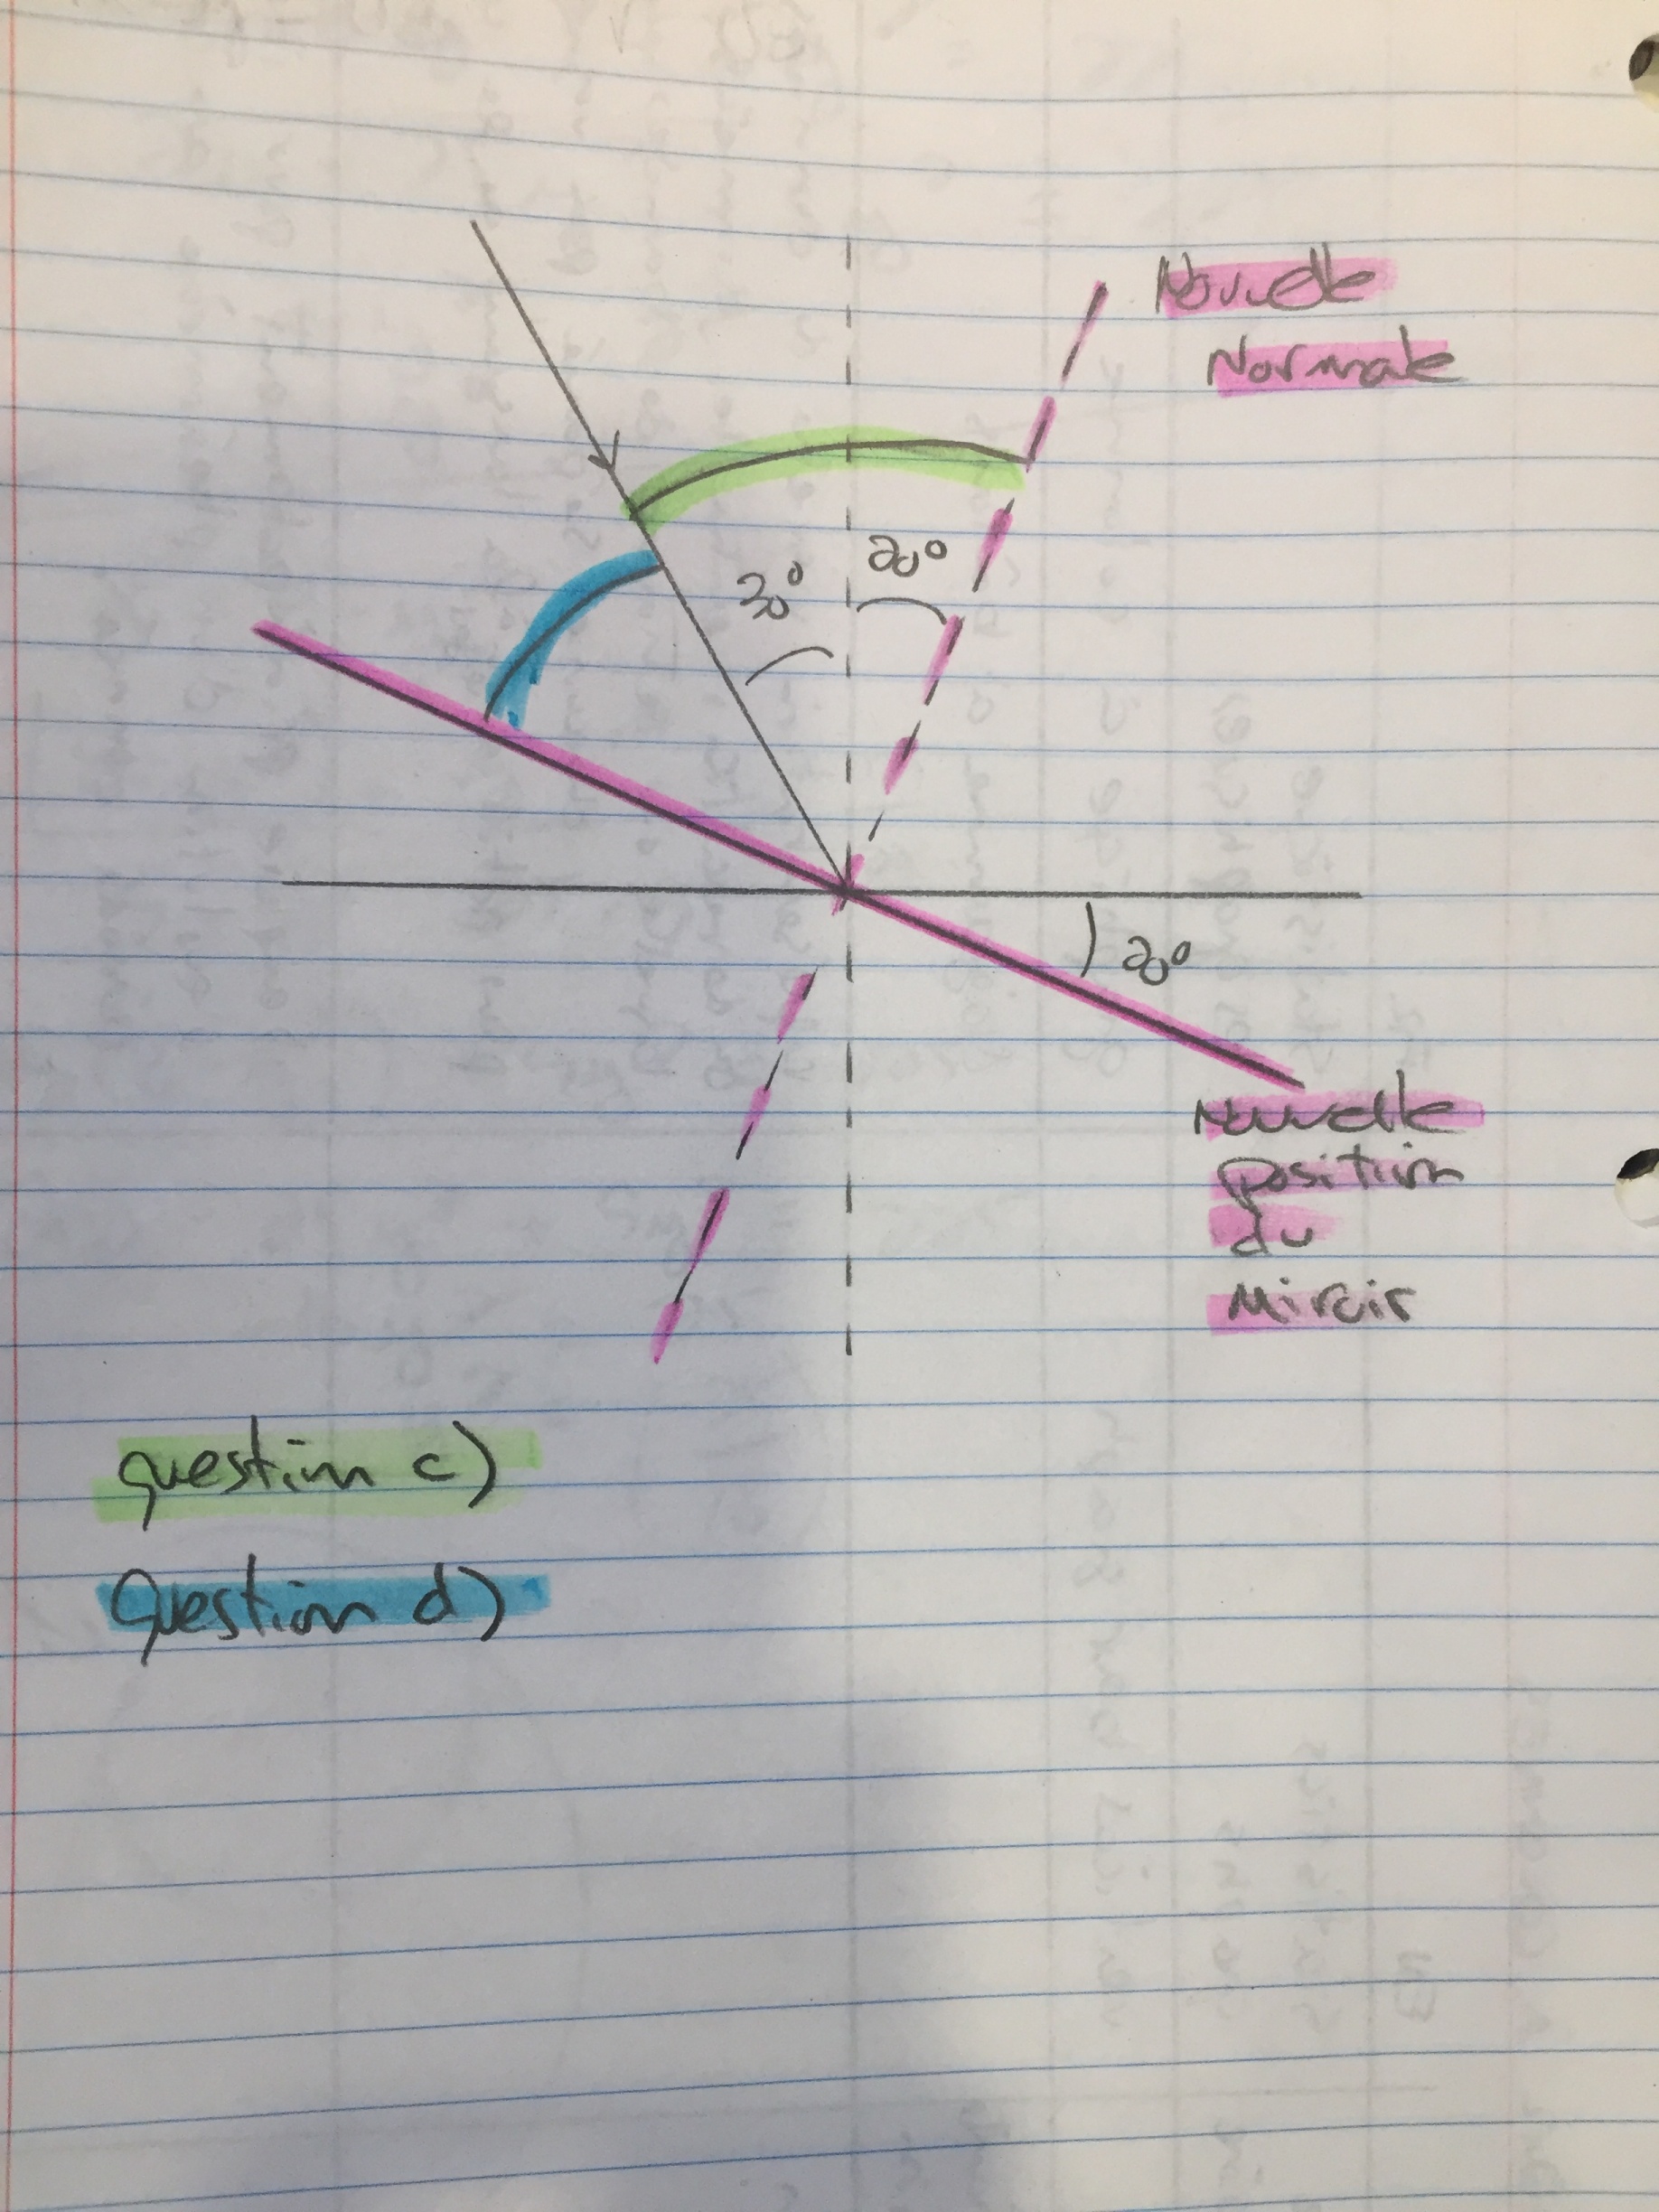 Nouvelle
Normale
20°
30°
20°
Nouvelle
position
du
Miroir
question c)
Question d)